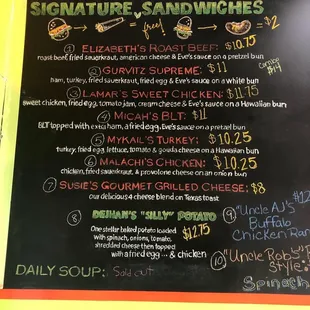 SIGNATURE SANDWICHES
= free!
= $2
① ELIZABETH'S ROAST BEEF: $10.75
roast beef, fried sauerkraut, american cheese & Eve's sauce on a pretzel bun
② GURVITZ SUPREME: $11
$14
ham, turkey, fried sauerkraut, fried egg & Eve's sauce on a white bun
③ LAMAR'S SWEET CHICKEN: $11.75
sweet chicken, fried egg, tomato jam, cream cheese & Eve's sauce on a Hawaiian bun
④ MICAH'S BLT: $11
BLT topped with extra ham, a fried egg, Eve's sauce on a pretzel bun
⑤ MYKAIL'S TURKEY: $10.25
turkey, fried egg, lettuce, tomato & gouda cheese on a Hawaiian bun
⑥ MALACHI'S CHICKEN: $10.25
chicken, fried sauerkraut, & provolone cheese on an onion bun
⑦ SUSIE'S GOURMET GRILLED CHEESE: $8
our delicious 4 cheese blend on Texas toast
⑧ DEIHAN'S "SILLY" POTATO
One stellar baked potato loaded $12.75
with spinach, onions, tomato,
shredded cheese then topped
with a fried egg ... & chicken
⑨ "Uncle AJ's $12
Buffalo
Chicken Ran
⑩ "Uncle Rob's
Style"
Spinach
DAILY SOUP: Sold out